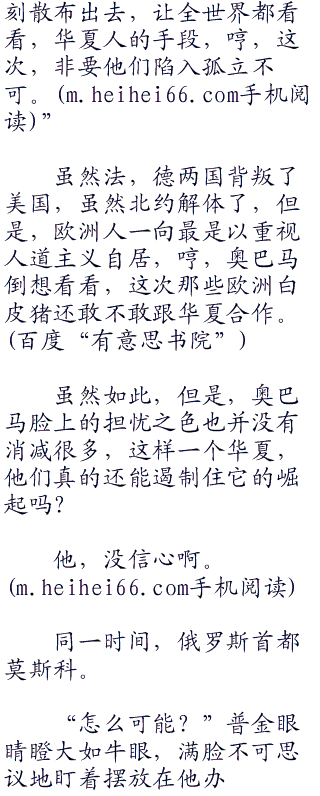 刻散布出去，让全世界都看
看，华夏人的手段，哼，这
次，非要他们陷入孤立不
可。(m.heihei66.com手机阅
读)”
虽然法，德两国背叛了
美国，虽然北约解体了，但
是，欧洲人一向最是以重视
人道主义自居，哼，奥巴马
倒想看看，这次那些欧洲白
皮猪还敢不敢跟华夏合作。
(百度“有意思书院”)
虽然如此，但是，奥巴
马脸上的担忧之色也并没有
消减很多，这样一个华夏，
他们真的还能遏制住它的崛
起吗？
他，没信心啊。
(m.heihei66.com手机阅读)
同一时间，俄罗斯首都
莫斯科。
“怎么可能？”普金眼
睛瞪大如牛眼，满脸不可思
议地盯着摆放在他办